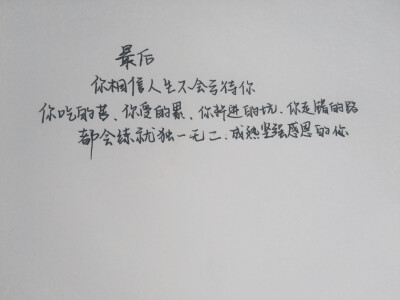 最后
你相信人生不会亏待你
你吃的苦、你受的累、你掉进的坑、你走错的路
都会练就独一无二、成熟坚强感恩的你